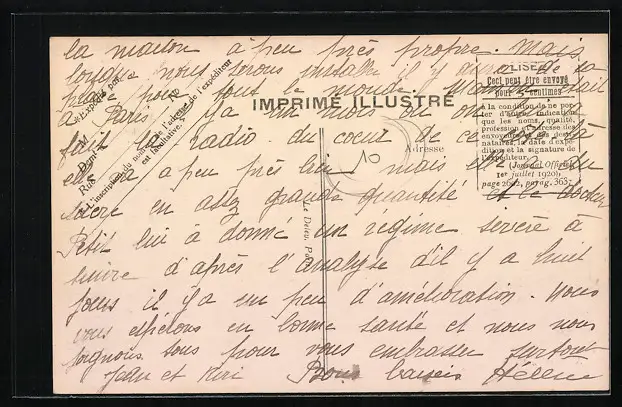 la maison à peu près propre. Mais
lorsque nous serons installés il y aura de la
place pour tous le monde. était
à Paris il y a un mois on a
fait la radio du coeur de ce côté-là
elle va à peu près bien mais elle a du
sucre en assez grande quantité et le docteur
Petit lui à donné un régime sevère à
suivre d'après l'analyse d'il y a huit
jours il y a un peu d'amélioration. Nous
vous espérons en bonne santé et nous nous
joignons tous pour vous embrasser surtout
Jean et Riri Bons baisers Hélène
IMPRIMÉ ILLUSTRÉ
Adresse
10
LISEZ
Ceci peut être envoyé
pour 5 centimes
à la condition de ne por-
ter d'autre indication
que les noms, qualité,
profession et adresse des
envoyeurs et des desti-
nataires, la date d'expé-
dition et la signature de
l'expéditeur.
(Journal Officiel
1er juillet 1920),
page 2642, parag. 363.
Expédié par
M
Rue
N°
L'inscription du nom et de l'adresse de l'expéditeur
est facultative.